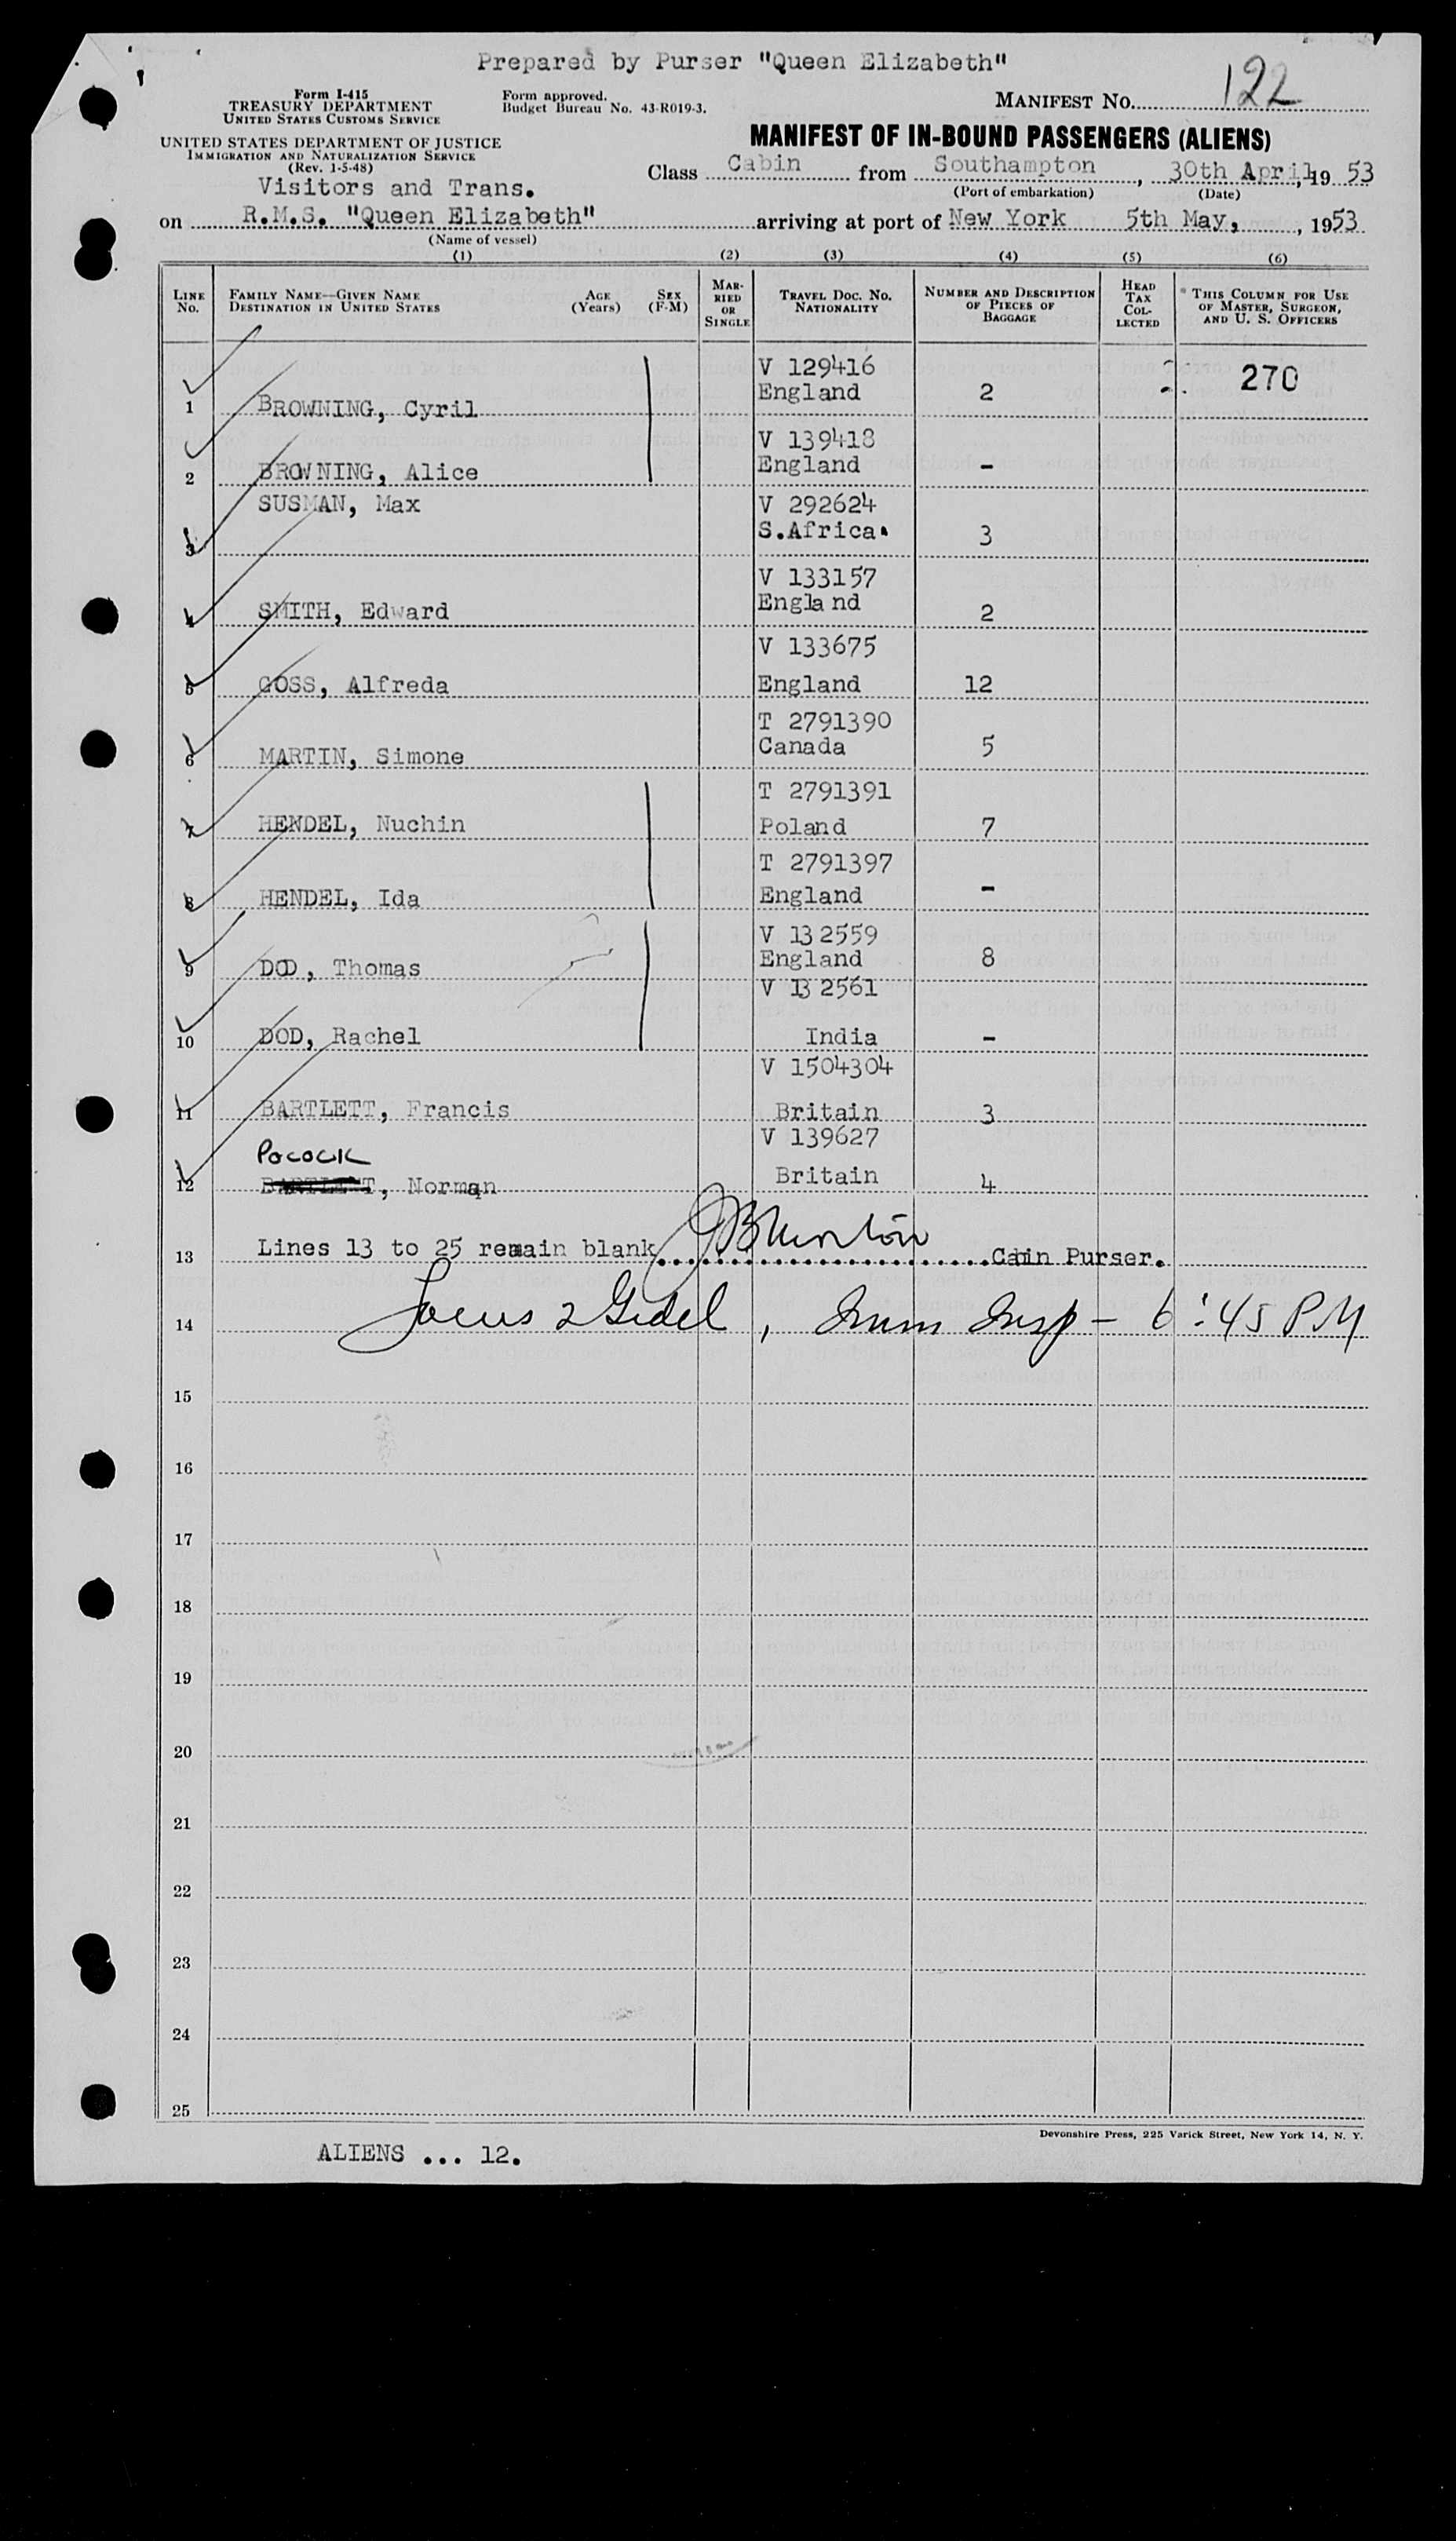 Prepared by Purser "Queen Elizabeth"
Form I-415
TREASURY DEPARTMENT
UNITED STATES CUSTOMS SERVICE
Form approved.
Budget Bureau No. 43-R019-3.
MANIFEST No. 122
UNITED STATES DEPARTMENT OF JUSTICE
IMMIGRATION AND NATURALIZATION SERVICE
(Rev. 1-5-48)
MANIFEST OF IN-BOUND PASSENGERS (ALIENS)
Class Cabin from Southampton, 30th April, 19 53
(Port of embarkation) (Date)
Visitors and Trans.
on R.M.S. "Queen Elizabeth" arriving at port of New York 5th May, , 1953
(Name of vessel)
(1) (2) (3) (4) (5) (6)
LINE No. FAMILY NAME—GIVEN NAME DESTINATION IN UNITED STATES AGE (Years) SEX (F-M) MARRIED OR SINGLE TRAVEL DOC. NO. NATIONALITY NUMBER AND DESCRIPTION OF PIECES OF BAGGAGE HEAD TAX COLLECTED THIS COLUMN FOR USE OF MASTER, SURGEON, AND U. S. OFFICERS
V 129416
1 BROWNING, Cyril England 2 270
V 139418
2 BROWNING, Alice England -
SUSMAN, Max V 292624
3 S.Africa. 3
V 133157
4 SMITH, Edward England 2
V 133675
5 GOSS, Alfreda England 12
T 2791390
6 MARTIN, Simone Canada 5
T 2791391
7 HENDEL, Nuchin Poland 7
T 2791397
8 HENDEL, Ida England -
V 132559
9 DOD, Thomas England 8
V 132561
10 DOD, Rachel India -
V 1504304
11 BARTLETT, Francis Britain 3
Pocock V 139627
12 BARTLETT, Norman Britain 4
13 Lines 13 to 25 remain blank Cabin Purser.
14 , Imm Insp - 6:45 PM
15
16
17
18
19
20
21
22
23
24
25
Devonshire Press, 225 Varick Street, New York 14, N. Y.
ALIENS ... 12.